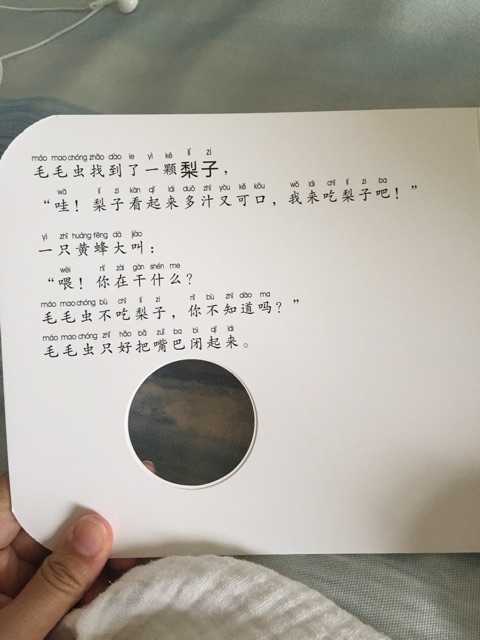 máo mao chóng zhǎo dào le yì kē lí zi
毛毛虫找到了一颗梨子，
wā lí zi kàn qǐ lái duō zhī yòu kě kǒu wǒ lái chī lí zi ba
“哇！梨子看起来多汁又可口，我来吃梨子吧！”
yì zhī huáng fēng dà jiào
一只黄蜂大叫：
wèi nǐ zài gàn shén me
“喂！你在干什么？
máo mao chóng bù chī lí zi nǐ bù zhī dào ma
毛毛虫不吃梨子，你不知道吗？”
máo mao chóng zhǐ hǎo bǎ zuǐ ba bì qǐ lái
毛毛虫只好把嘴巴闭起来。